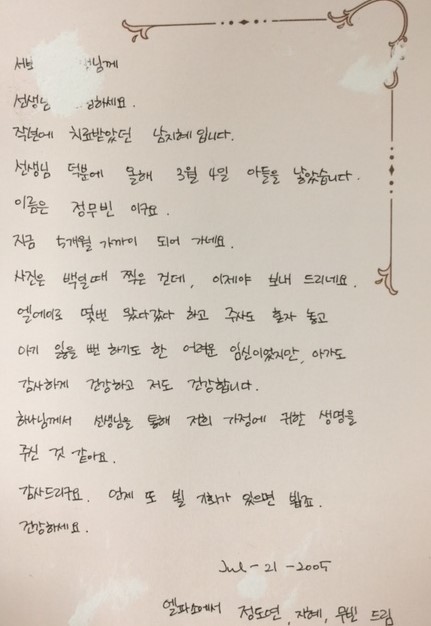 서 님께
선생님 하세요.
작년에 치료받았던 남지혜입니다.
선생님 덕분에 올해 3월 4일 아들을 낳았습니다.
이름은 정무빈 이구요.
지금 5개월 가까이 되어 가네요.
사진은 백일때 찍은 건데, 이제야 보내 드리네요.
엘에이로 몇번 왔다갔다 하고 주사도 혼자 놓고
아기 잃을 뻔 하기도 한 어려운 임신이었지만, 아가도
감사하게 건강하고 저도 건강합니다.
하나님께서 선생님을 통해 저희 가정에 귀한 생명을
주신 것 같아요.
감사드리구요. 언제 또 뵐 기회가 있으면 뵙죠.
건강하세요.
Jul - 21 - 2005
엘파소에서 정도연, 지혜, 무빈 드림